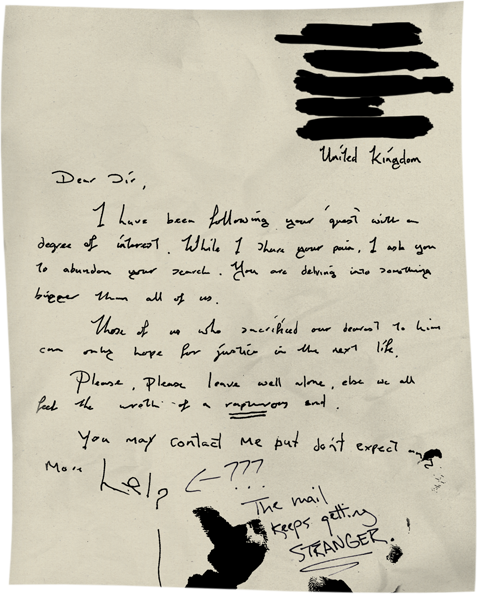 United Kingdom
Dear Sir,
I have been following your 'quest' with a
degree of interest. While I share your pain, I ask you
to abandon your search. You are delving into something
bigger than all of us.
Those of us who sacrificed our dearest to him
can only hope for justice in the next life.
Please, Please leave well alone, else we all
feel the wroth of a rapturous end.
You may contact me but don't expect any
More help ← ???
The mail
keeps getting
STRANGER.